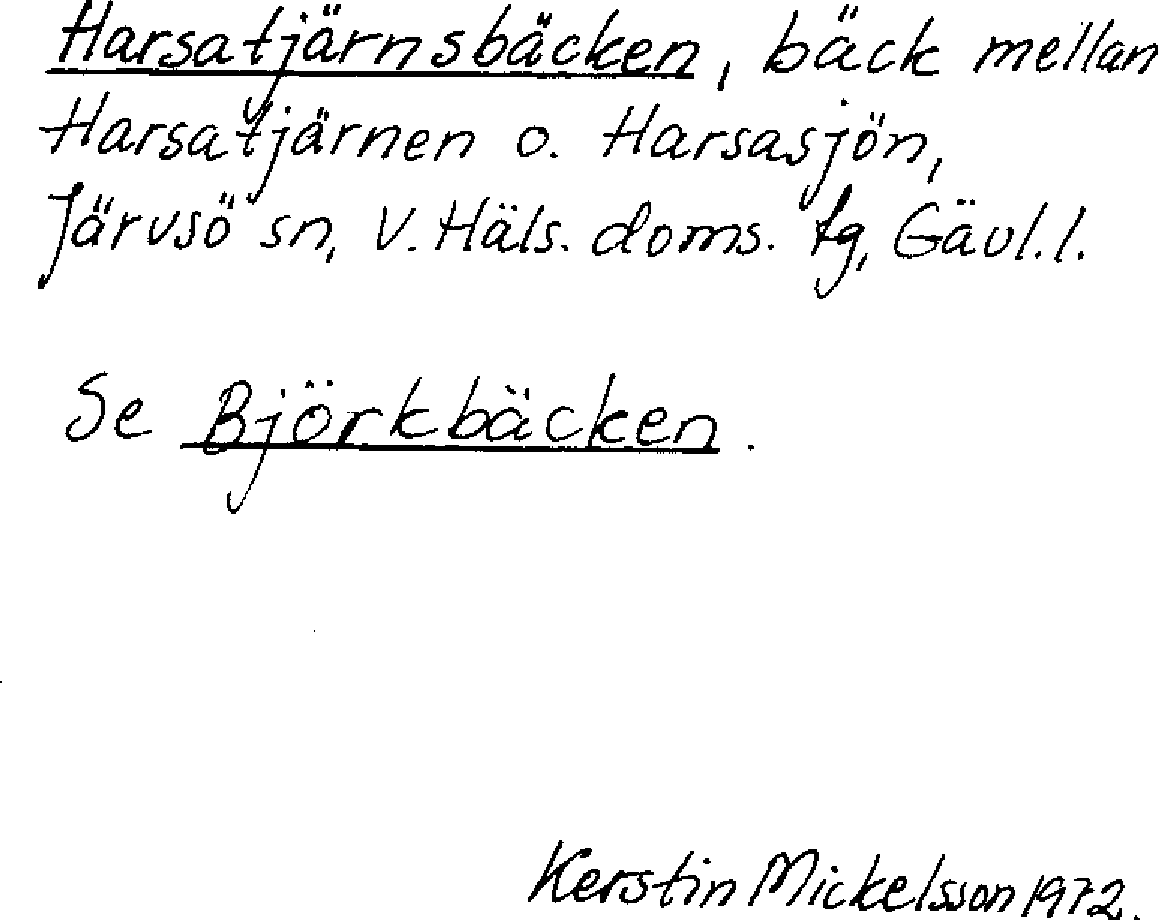 Harsatjärnsbäcken, bäck mellan
Harsatjärnen o. Harsasjön,
Järvsö sn, V. Häls. doms. tg, Gävl. l.
Se Björkbäcken.
Kerstin Mickelsson 1972.